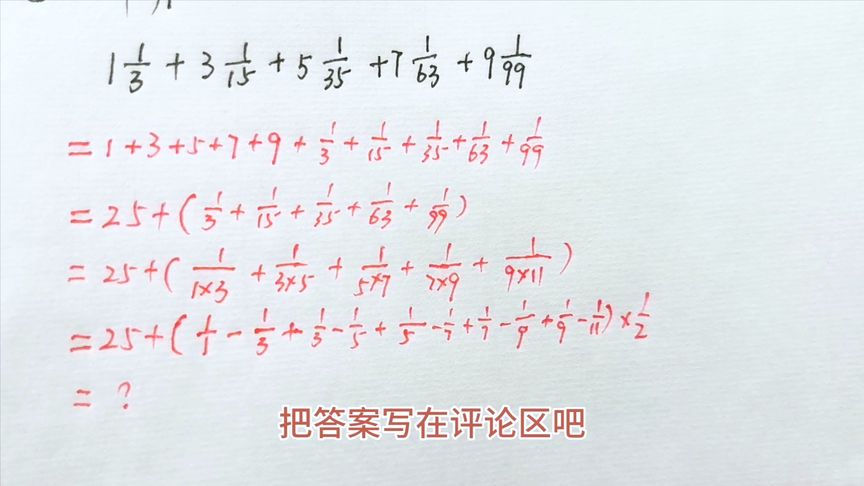 1 1/3 + 3 1/15 + 5 1/35 + 7 1/63 + 9 1/99
= 1+3+5+7+9 + 1/3 + 1/15 + 1/35 + 1/63 + 1/99
= 25+( 1/3 + 1/15 + 1/35 + 1/63 + 1/99 )
= 25+( 1/1×3 + 1/3×5 + 1/5×7 + 1/7×9 + 1/9×11 )
= 25+( 1/1 - 1/3 + 1/3 - 1/5 + 1/5 - 1/7 + 1/7 - 1/9 + 1/9 - 1/11 ) × 1/2
= ?
把答案写在评论区吧